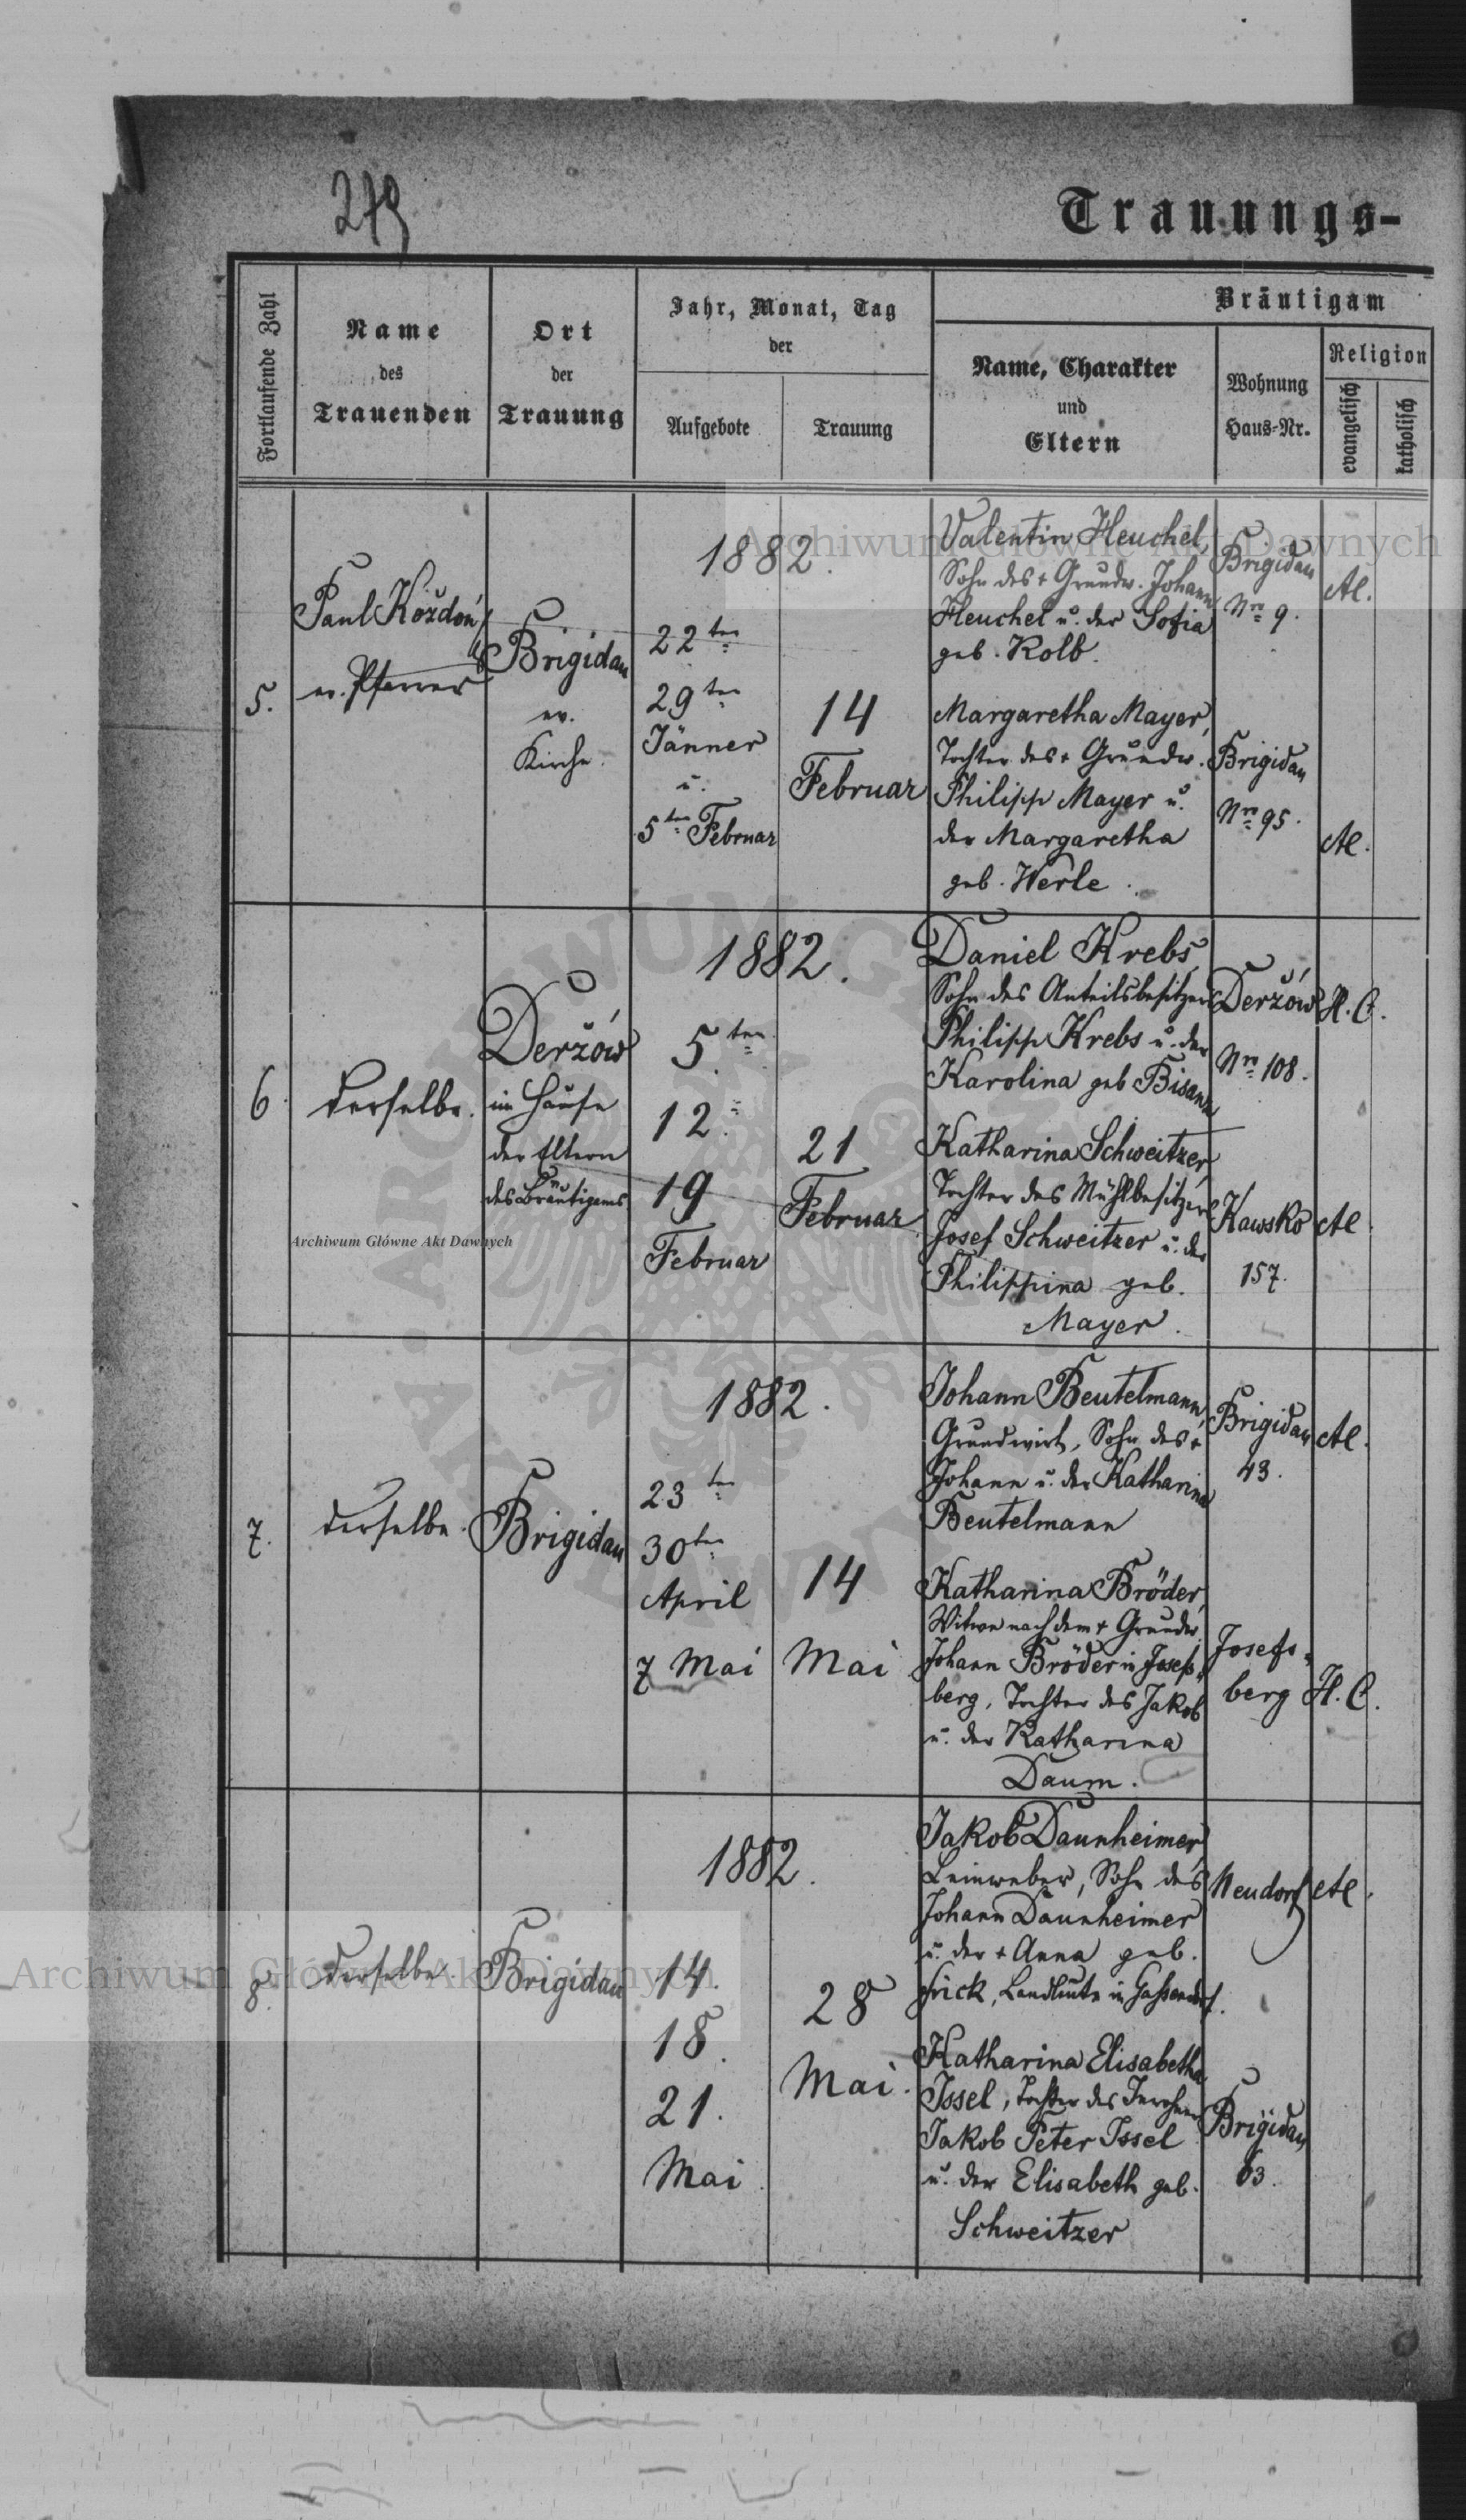 279
Trauungs-
Fortlaufende Zahl
Name
des
Trauenden
Ort
der
Trauung
Jahr, Monat, Tag
der
Aufgebote
Trauung
Bräutigam
Name, Charakter
und
Eltern
Wohnung
Haus-Nr.
Religion
evangelisch
katholisch
5.
Paul Koždoń
ev. Pfarrer
Brigidau
ev.
Kirche.
1882.
22ten
29ten
Jänner
u.
5ten Februar
14
Februar
Valentin Heuchel,
Sohn des + Grundw. Johann
Heuchel u. der Sofia
geb. Kolb.
Brigidau
Nro 9.
A.C.
Margaretha Mayer,
Tochter des + Grundw.
Philipp Mayer u.
der Margaretha
geb. Werle.
Brigidau
Nro 95.
A.C.
6.
derselbe.
Deržów
im Hause
der Eltern
des Bräutigams
1882.
5ten
12.
19
Februar
21
Februar
Daniel Krebs,
Sohn des Anteilsbesitzers
Philipp Krebs u. der
Karolina geb Bisanz
Deržów
Nro 108.
H.C.
Katharina Schweitzer,
Tochter des Mühlbesitzers
Josef Schweitzer u. der
Philippina geb.
Mayer.
Kawsko
157.
A.C.
7.
derselbe.
Brigidau
1882.
23ten
30ten
April
7 Mai
14
Mai
Johann Beutelmann,
Grundwirt, Sohn des +
Johann u. der Katharina
Beutelmann
Brigidau
43.
A.C.
Katharina Bröder,
Witwe nach dem + Grundw.
Johann Bröder in Josefs-
berg, Tochter des Jakob
u. der Katharina
Daum.
Josefs-
berg
H.C.
8.
derselbe.
Brigidau
1882.
14.
18.
21.
Mai.
28
Mai.
Jakob Daunheimer,
Leinweber, Sohn des
Johann Daunheimer
u. der + Anna geb.
Frick, Landleute in Gassendorf.
Neudorf
A.C.
Katharina Elisabetha
Issel, Tochter des
Jakob Peter Issel
u. der Elisabeth geb.
Schweitzer
Brigidau
63.
Archiwum Główne Akt Dawnych
Archiwum Główne Akt Dawnych
Archiwum Główne Akt Dawnych
ARCHIWUM GŁÓWNE AKT DAWNYCH